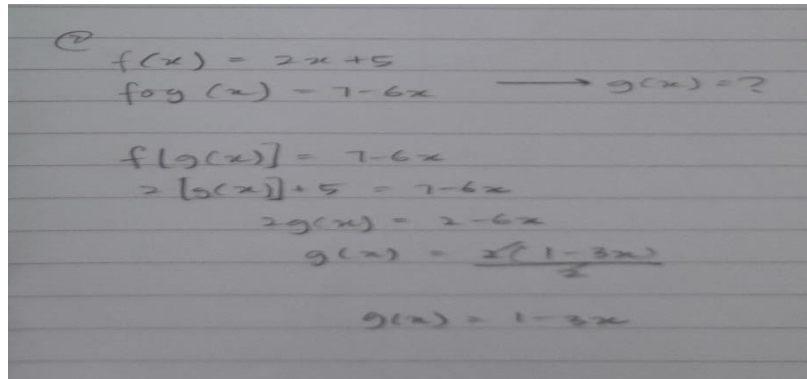 ②
f(x) = 2x+5
fog (x) = 7-6x → g(x) = ?
f[g(x)] = 7-6x
2[g(x)]+5 = 7-6x
2g(x) = 2-6x
g(x) = 2(1-3x)/2
g(x) = 1-3x